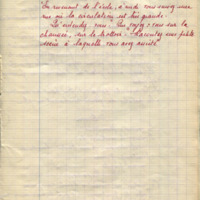 "En revenant de l'école, à midi vous suivez une
rue où la circulation est très grande.
Qu'entendez-vous. Que voyez-vous sur la
chaussée, sur le trottoir. Racontez une petite
scène à laquelle vous avez assisté"